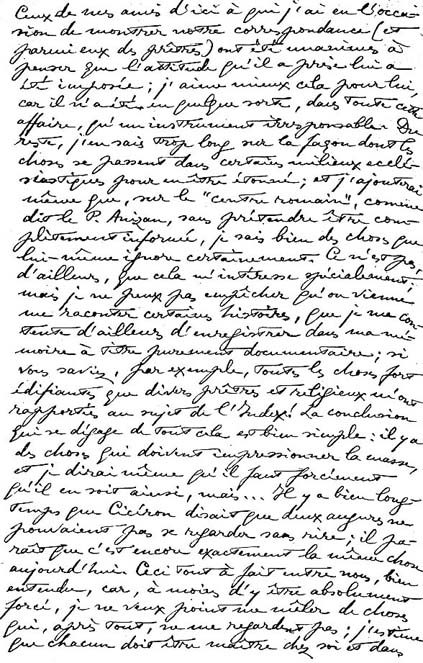 Ceux de mes amis d'ici à qui j'ai eu l'occa-
sion de montrer notre correspondance (et
parmi eux des prêtres) ont été unanimes à
penser que l'attitude qu'il a prise lui a
été imposée ; j'aime mieux cela pour lui,
car il n'a été, en quelque sorte, dans toute cette
affaire, qu'un instrument irresponsable. Du
reste, j'en sais trop long sur la façon dont les
choses se passent dans certains milieux ecclé-
siastiques pour m'être étonné ; et j'ajouterai
même que, sur le "centre romain", comme
dit le P. Anizan, sans prétendre être com-
plètement informé, je sais bien des choses que
lui-même ignore certainement. Ce n'est pas,
d'ailleurs, que cela m'intéresse spécialement ;
mais je ne peux pas empêcher qu'on vienne
me raconter certaines histoires, que je me con-
tente d'ailleurs d'enregistrer dans ma mé-
moire à titre purement documentaire ; si
vous saviez, par exemple, toutes les choses fort
édifiantes que divers prêtres et religieux m'ont
rapportées au sujet de l'Index ! La conclusion
qui se dégage de tout cela est bien simple : il y a
des choses qui doivent impressionner la masse,
et je dirai même qu'il faut forcément
qu'il en soit ainsi, mais... Il y a bien long-
temps que Cicéron disait que deux augures ne
pouvaient pas se regarder sans rire ; il pa-
raît que c'est encore exactement la même chose
aujourd'hui. Ceci tout à fait entre nous, bien
entendu, car, à moins d'y être absolument
forcé, je ne veux point me mêler de choses
qui, après tout, ne me regardent pas ; j'estime
que chacun doit être maître chez soi et dans